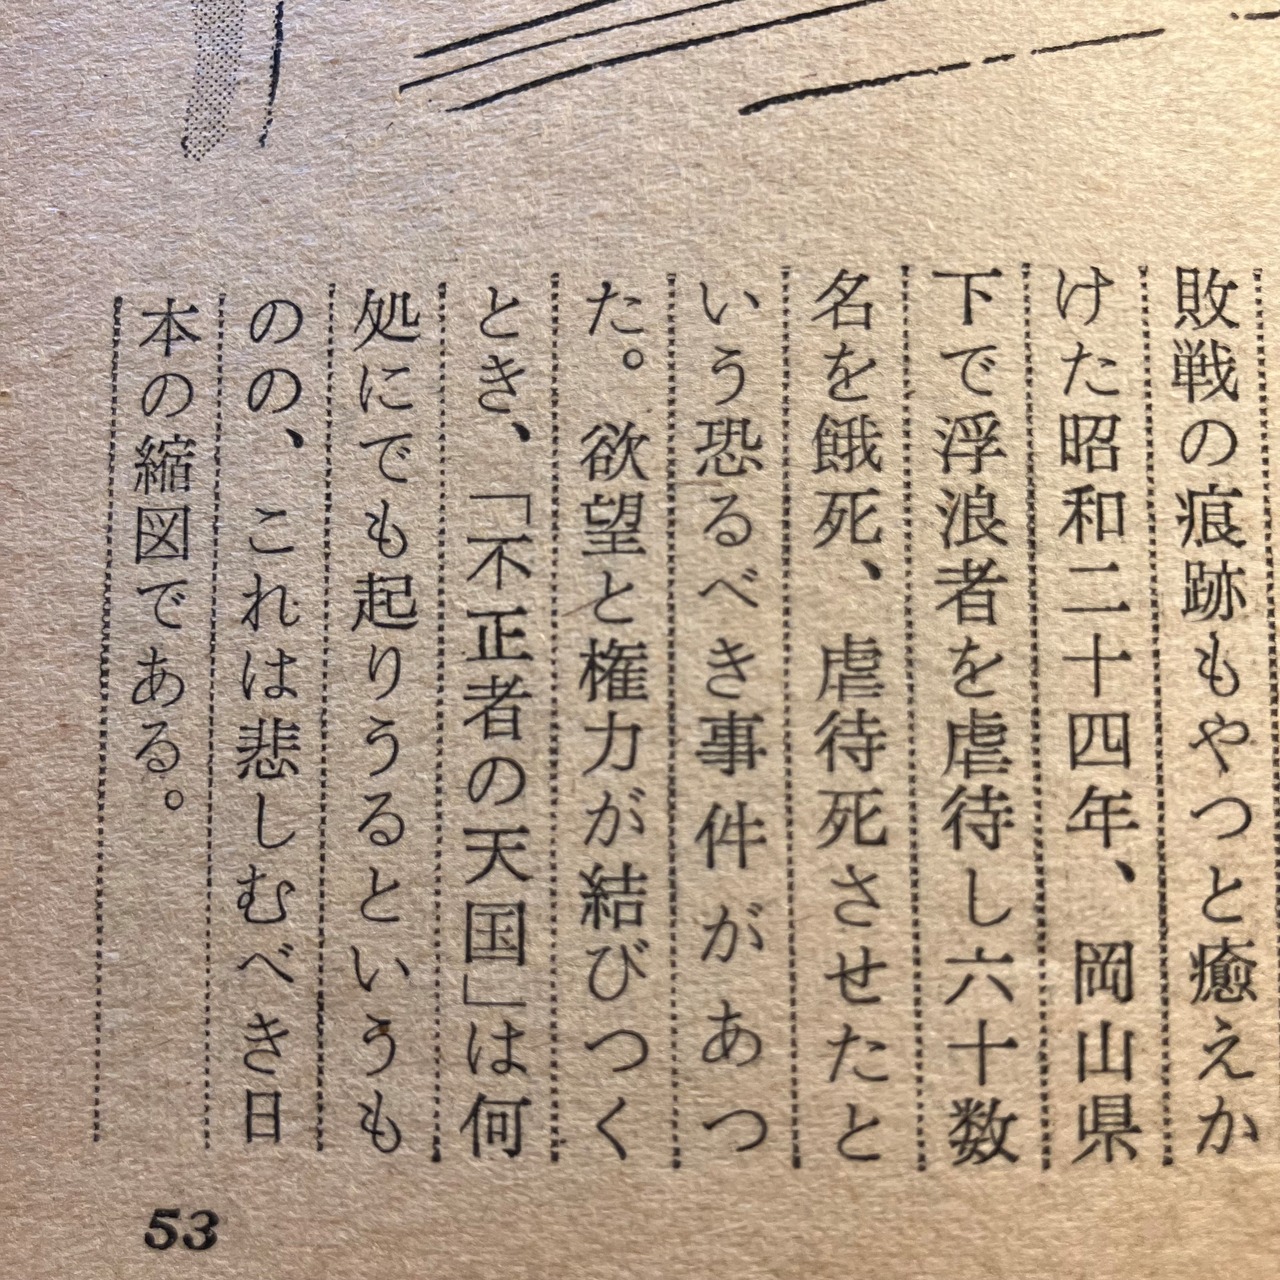 敗戦の痕跡もやつと癒えか
けた昭和二十四年、岡山県
下で浮浪者を虐待し六十数
名を餓死、虐待死させたと
いう恐るべき事件があつ
た。欲望と権力が結びつく
とき、「不正者の天国」は何
処にでも起りうるというも
のの、これは悲しむべき日
本の縮図である。
53